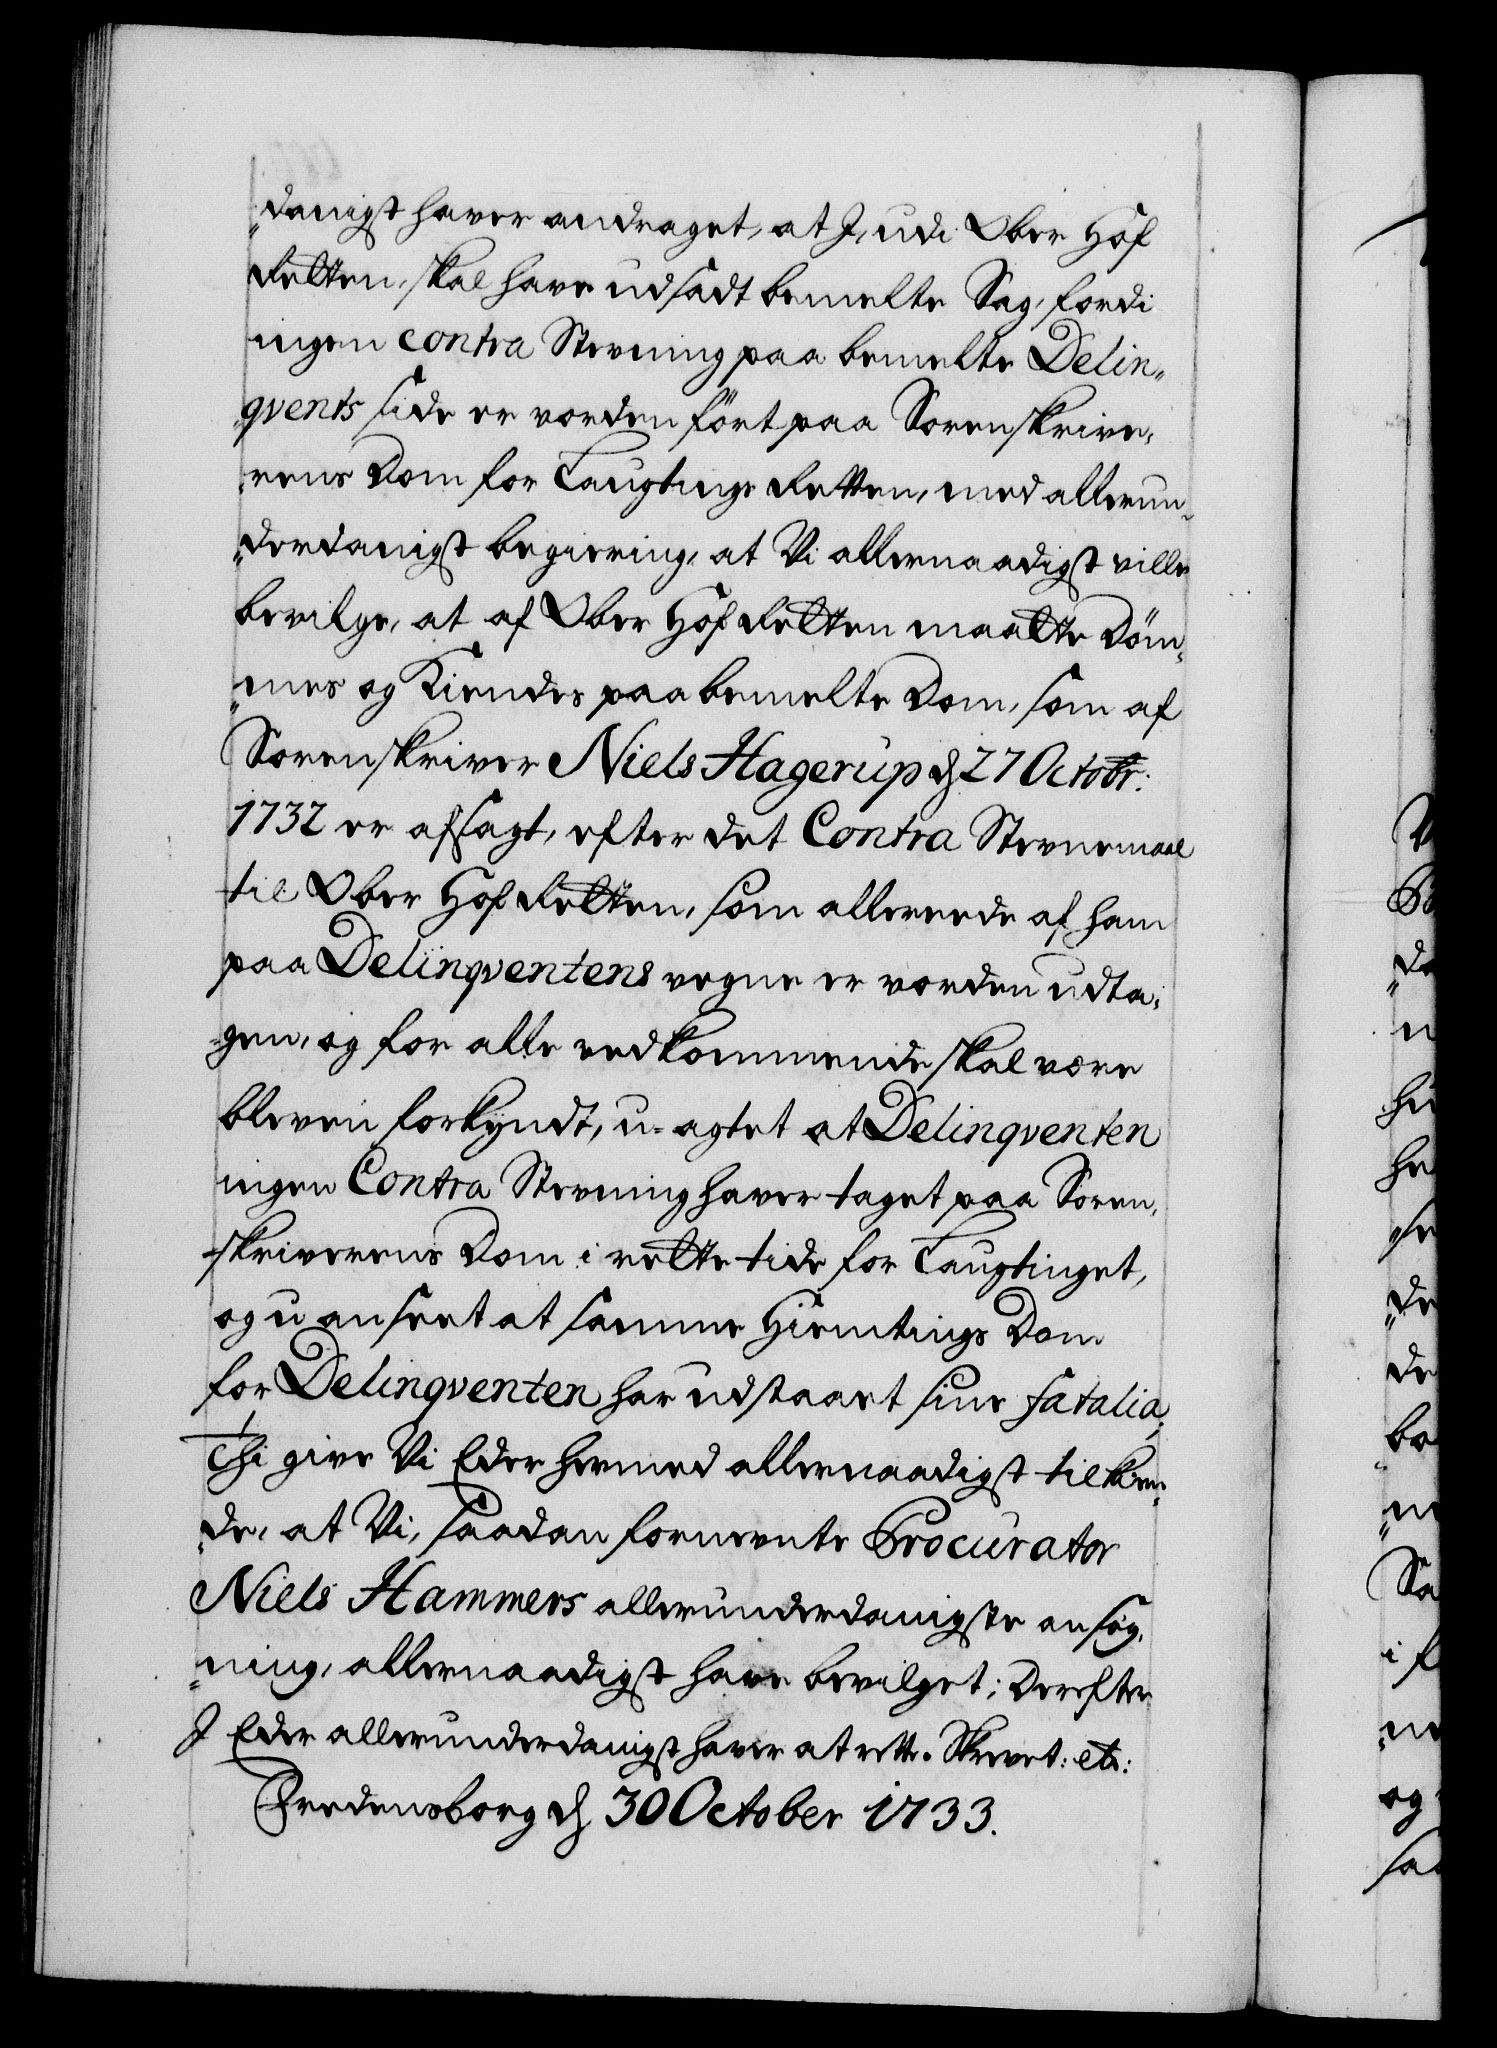 „danigst haver andraget, at J, udi Ober Hof
Retten, skal have udsadt bemelte Sag, fordi
ingen contra Stevning paa bemelte Delin„
qvents side er vorden ført paa Sorenskrive„
rens Dom for Laugtings Retten, med allerun„
„derdanigst begiering, at Vi allernaadigst ville
bevilge, at af Ober Hof Retten maatte Döm„
„mes og Kiendes paa bemelte Dom, som af
Sorenskriver Niels Hagerup d 27 Octobr:
1732 er afsagt, efter det Contra Stevnemaal
til Ober Hof Retten, som allereede af ham
paa Delinqventens vegne er vorden udta„
gen, og for alle vedkommende skal være
bleven forkyndt, u-agtet at Delinqventen
ingen Contra Stevning haver taget paa Soren„
skriverens Dom i rette tide for Laugtinget,
og u anseet at samme Hiemtings Dom
for Delinqventen har udstaaet sine fatalia;
Thi give Vi Eder hermed allernaadigst tilkien„
„de, at Vi, saadan fornevnte Procurator
Niels Hammers allerunderdanigste ansøg„
„ning, allernaadigst have bevilget; Derefter
J Eder allerunderdanigst haver at rette. Skrevet: etc:
Fredensborg d 30 October 1733.